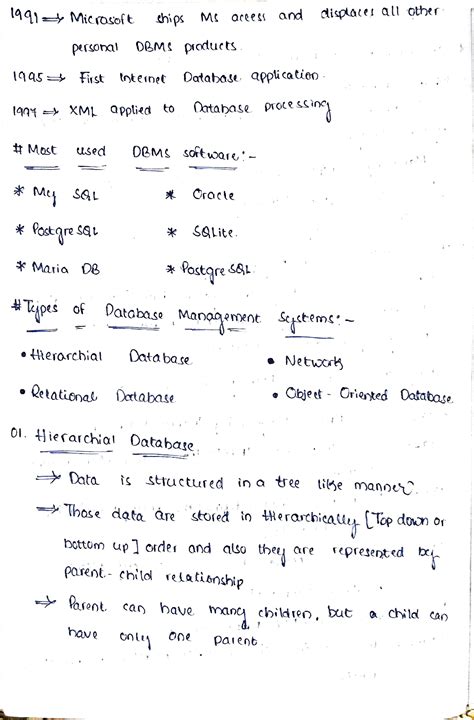 1991 ⇒ Microsoft ships MS access and displaces all other
personal DBMS products.
1995 ⇒ First Internet Database application.
1997 ⇒ XML applied to Database processing
# Most used DBMS software:-
* My SQL * Oracle
* Postgre SQL * SQLite.
* Maria DB * Postgre SQL.
# Types of Database Management Systems:-
• Hierarchial Database • Network
• Relational Database • Object-Oriented Database.
01. Hierarchial Database
⇒ Data is structured in a tree like manner.
⇒ Those data are stored in Hierarchically [Top down or
bottom up] order and also they are represented by
parent-child relationship
⇒ Parent can have many children, but a child can
have only one parent.